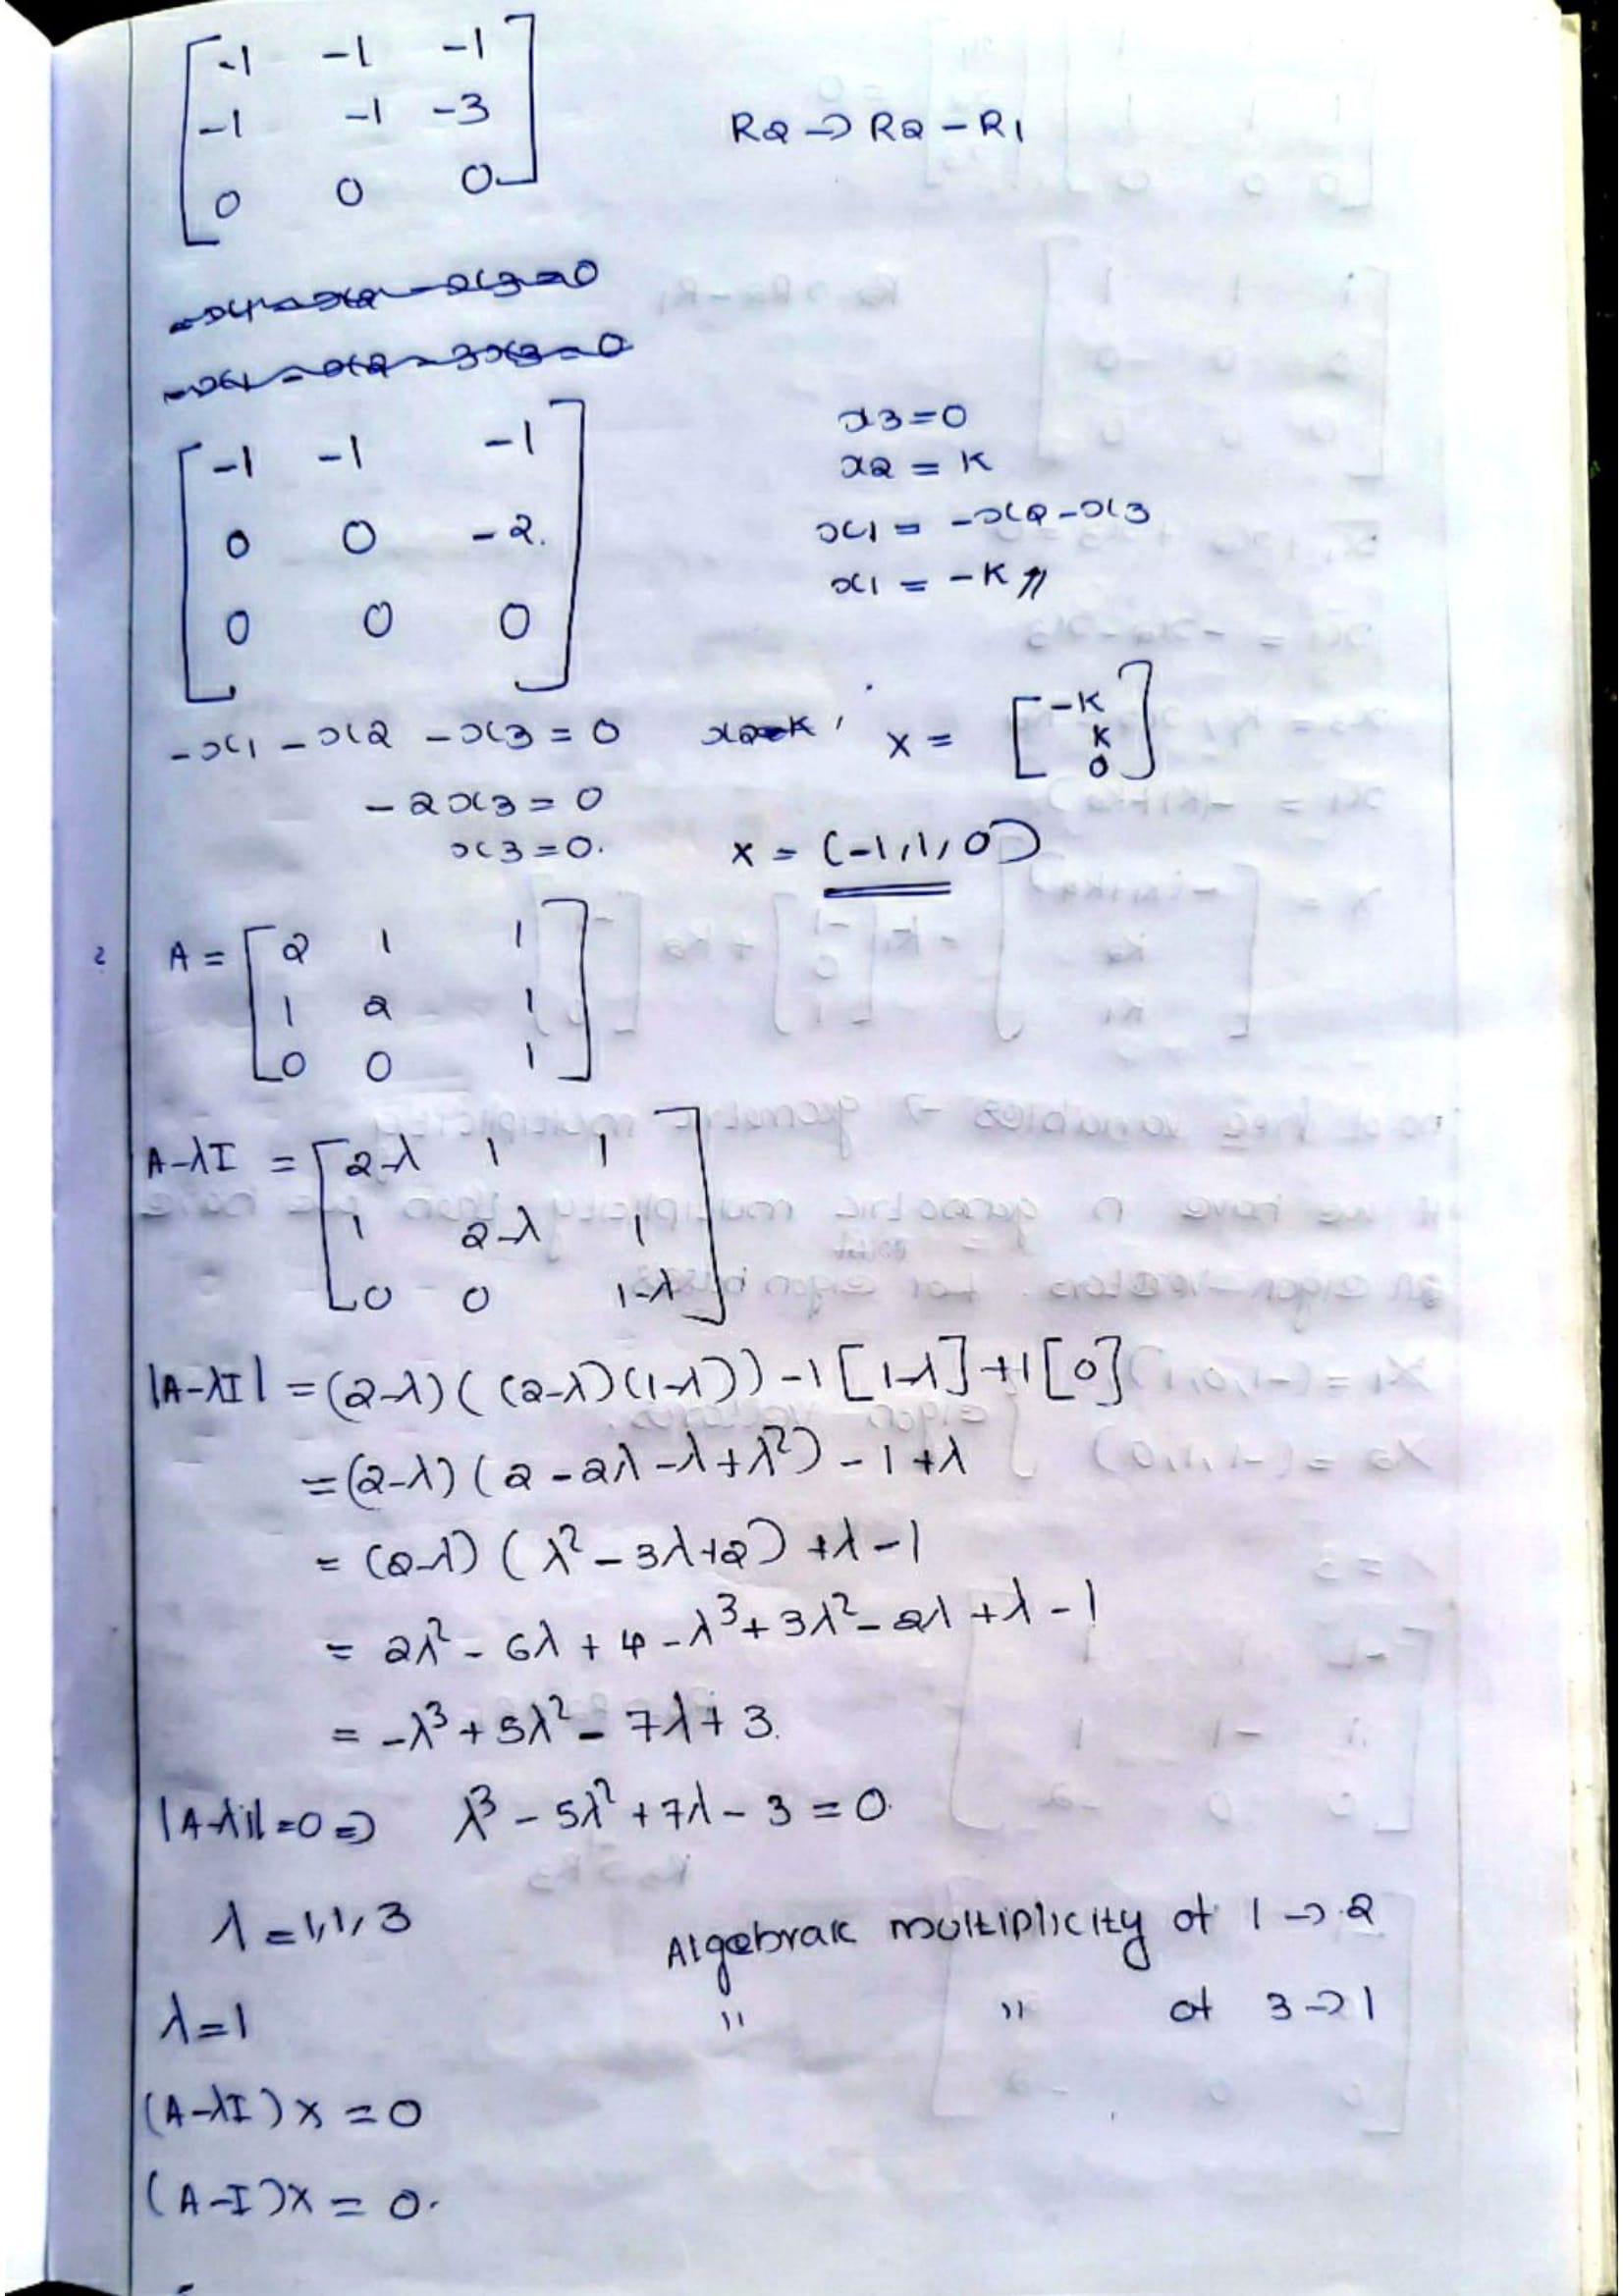 [-1 -1 -1
-1 -1 -3 R2 → R2 - R1
0 0 0]
-x1 - x2 - x3 = 0
-x1 - x2 - 3x3 = 0
[-1 -1 -1
0 0 -2.
0 0 0]
x3 = 0
x2 = K
x1 = -x2 - x3
x1 = -K //
-x1 - x2 - x3 = 0 x2=K, X = [-K
K
0]
-2x3 = 0
x3 = 0. X = (-1,1,0)
2 A = [2 1 1
1 2 1
0 0 1]
A-λI = [2-λ 1 1
1 2-λ 1
0 0 1-λ]
|A-λI| = (2-λ)((2-λ)(1-λ)) - 1[1-λ] + 1[0]
= (2-λ)(2 - 2λ - λ + λ²) - 1 + λ
= (2-λ)(λ² - 3λ + 2) + λ - 1
= 2λ² - 6λ + 4 - λ³ + 3λ² - 2λ + λ - 1
= -λ³ + 5λ² - 7λ + 3.
|A-λI| = 0 ⇒ λ³ - 5λ² + 7λ - 3 = 0.
λ = 1,1,3 Algebraic multiplicity of 1 → 2
λ = 1 " " of 3 → 1
(A-λI)X = 0
(A-I)X = 0.